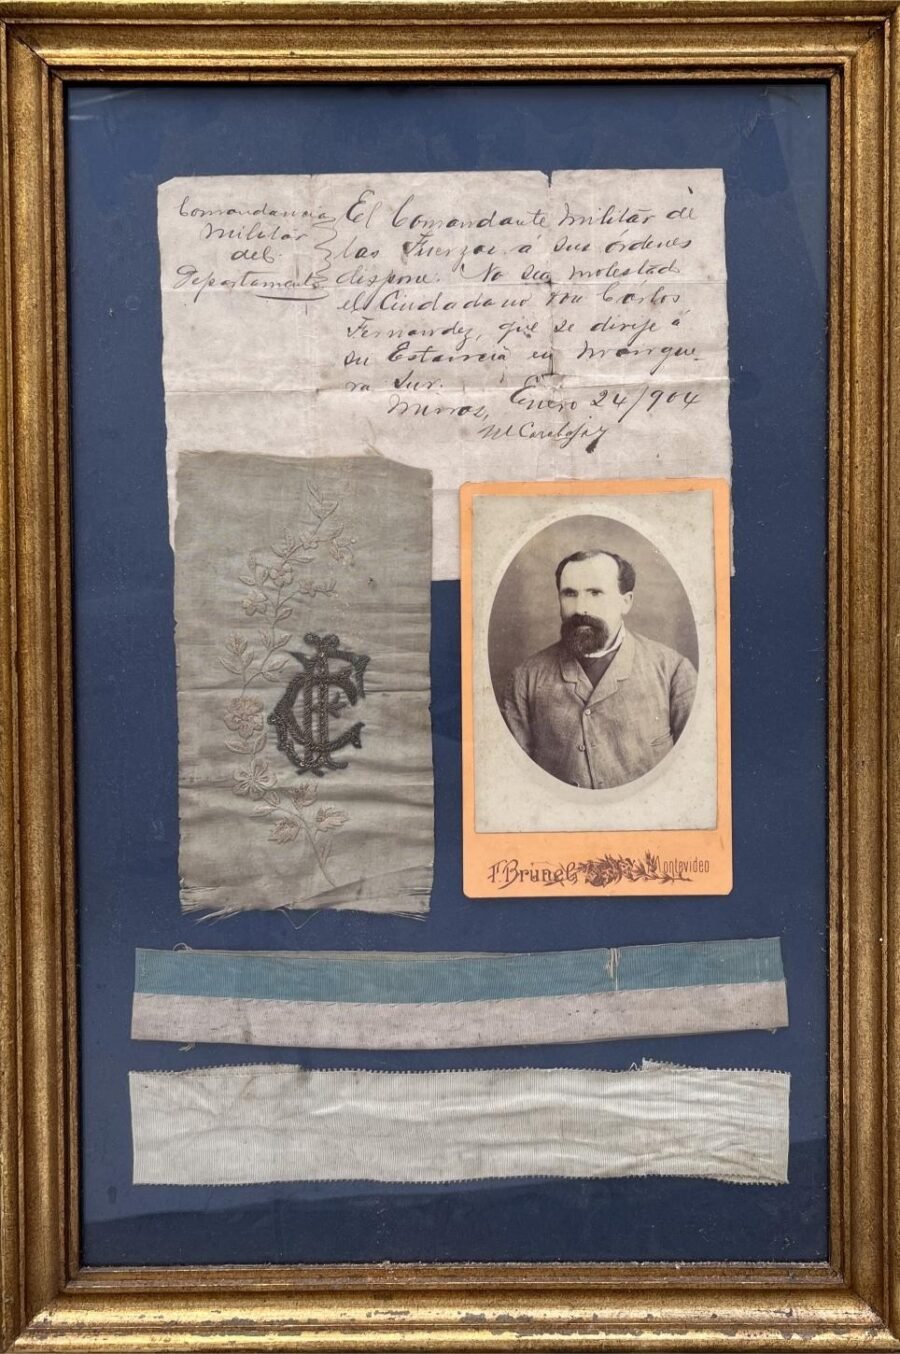 Comandancia
Militar
del
Departamento
El Comandante Militar de
las Fuerzas á sus órdenes
dispone: No sea molestado
el Ciudadano don Cárlos
Fernandez, que se dirije á
su Estancia en Mangue-
ra Sur.
Minas, Enero 24/904
F. Brunel Montevideo
CF